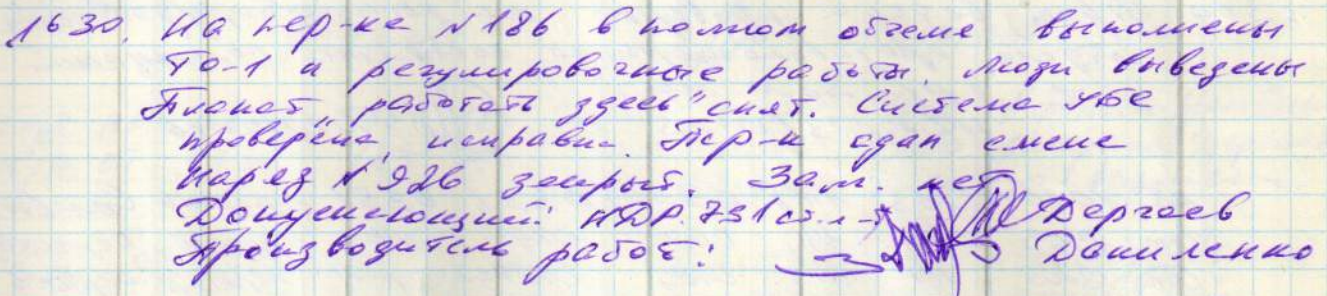 1630. На пер-ке №186 в полном объеме выполнены
ТО-1 и регулировочные работы. Люди выведены
Плакат „работать здесь" снят. Система УБС
проверена, исправна. Пер-к сдан смене
Наряд № 926 закрыт. Зам. нет
Допускающий: НДР. 731 ст. л-т Дергаев
Производитель работ: Даниленко